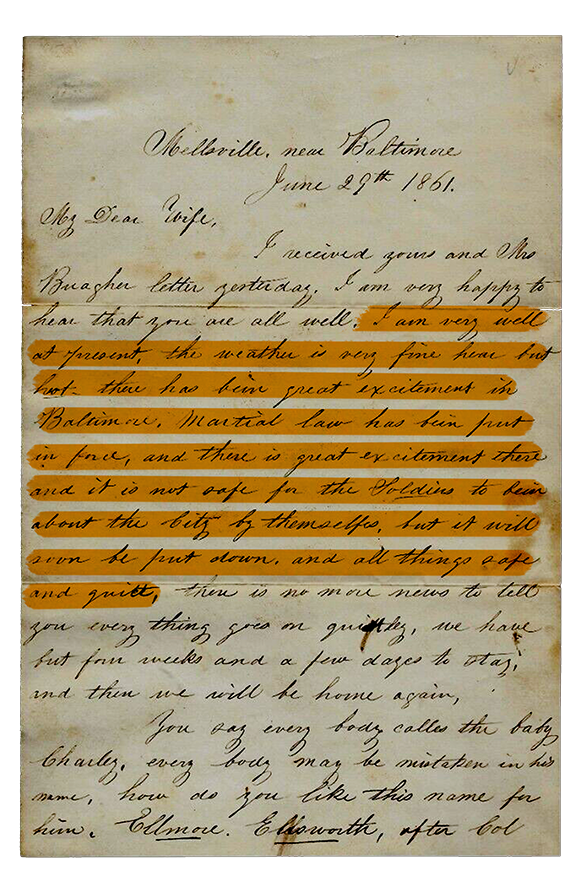 Mellsville, near Baltimore
June 29th 1861.
My Dear Wife,
I received yours and Mrs
Buagher letter yesterday. I am very happy to
hear that you are all well. I am very well
at present, the weather is very fine hear but
hot. there has bein great excitement in
Baltimore. Martial law has bin put
in force, and there is great excitement there
and it is not safe for the Soldiers to bein
about the City by themselfes, but it will
soon be put down. and all things safe
and quiet, there is no more news to tell
you every thing goes on quietley, we have
but four weeks and a few dayes to stay,
and then we will be home again,
You say every body calles the baby
Charley. every body may be mistaken in his
name, how do you like this name for
him. Ellmore. Ellsworth, after Col